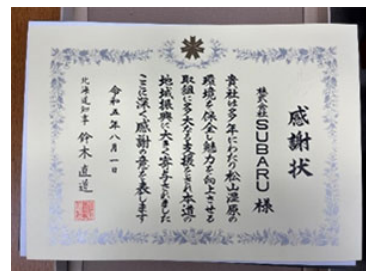 感謝状
株式会社SUBARU 様
貴社は多年にわたり松山湿原の
環境を保全し魅力を向上させる
取組に多大なる支援をされ本道の
地域振興に大きく寄与されました
ここに深く感謝の意を表します
令和五年八月一日
北海道知事 鈴木直道